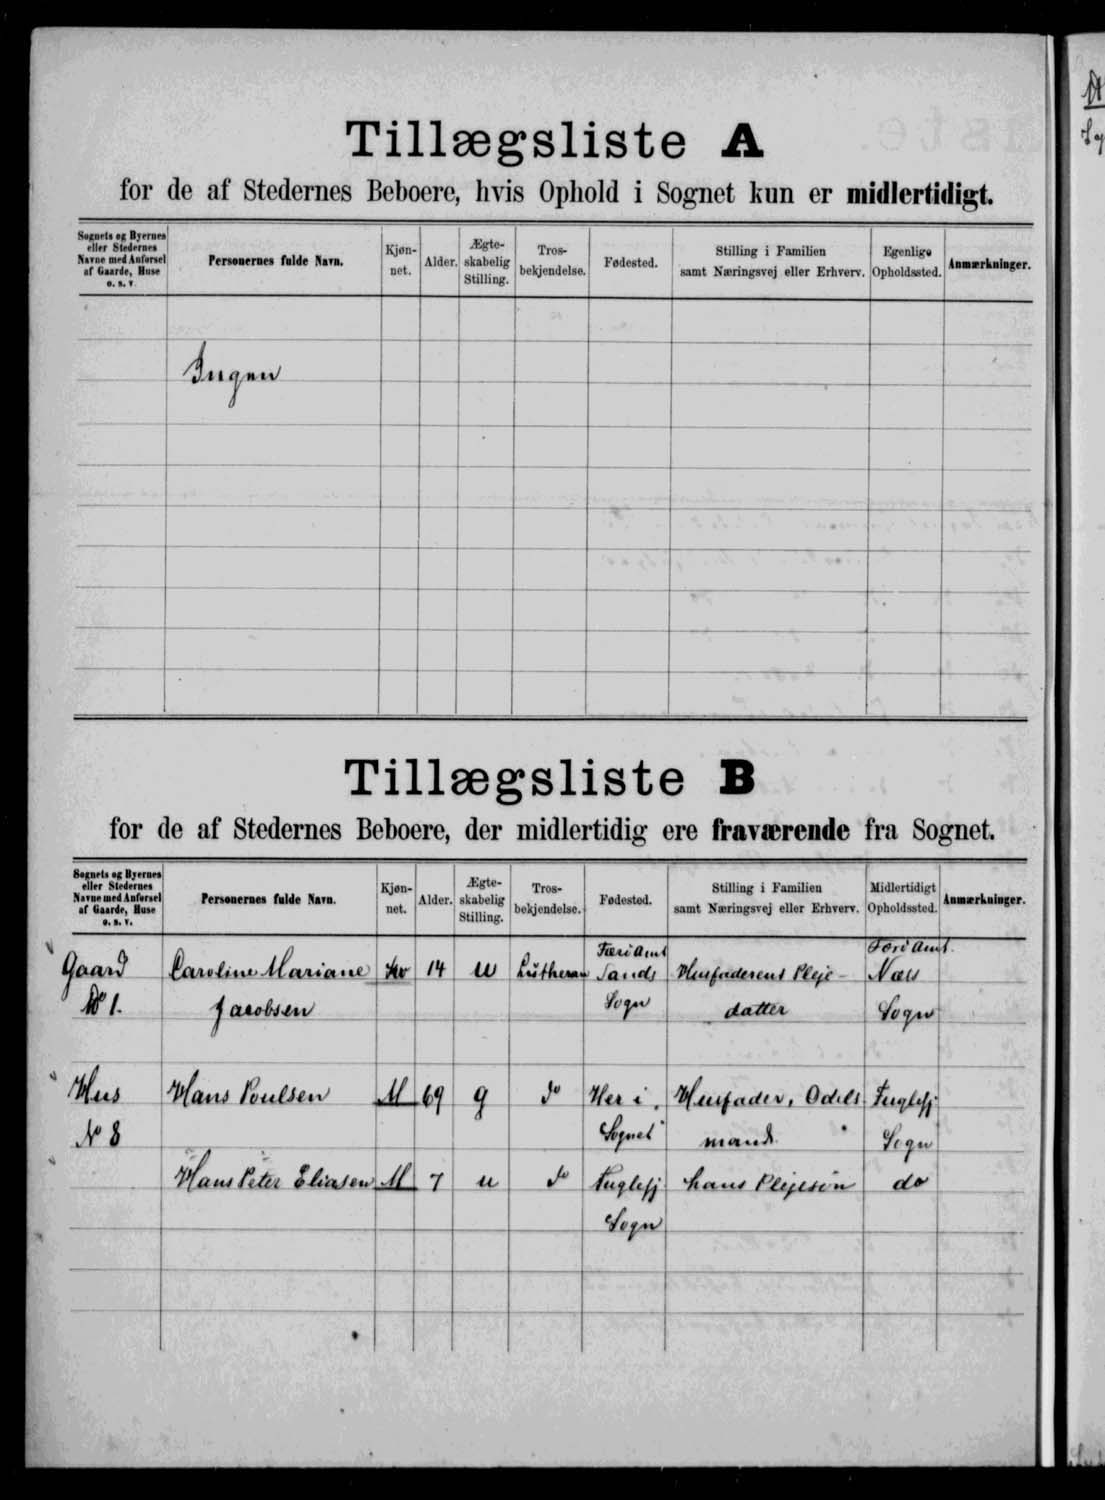 Tillægsliste A
for de af Stedernes Beboere, hvis Ophold i Sognet kun er midlertidigt.
Sognets og Byernes eller Stedernes Navne med Anførsel af Gaarde, Huse o. s. v. Personernes fulde Navn. Kjøn- net. Alder. Ægte- skabelig Stilling. Tros- bekjendelse. Fødested. Stilling i Familien samt Næringsvej eller Erhverv. Egenlige Opholdssted. Anmærkninger.
Ingen
Tillægsliste B
for de af Stedernes Beboere, der midlertidig ere fraværende fra Sognet.
Sognets og Byernes eller Stedernes Navne med Anførsel af Gaarde, Huse o. s. v. Personernes fulde Navn. Kjøn- net. Alder. Ægte- skabelig Stilling. Tros- bekjendelse. Fødested. Stilling i Familien samt Næringsvej eller Erhverv. Midlertidigt Opholdssted. Anmærkninger.
Færø Amt Færø Amt.
Gaard Caroline Mariane Kv 14 U Lutheran Sands Husfaderens Pleje- Næs
No 1. Jacobsen Sogn datter Sogn
Hus Hans Poulsen M 69 g do Her i Husfader, Odels Fuglefj
No 8 Sognet mand. Sogn
Hans Peter Eliasen M 7 u do Fuglefj hans Plejesøn do
Sogn